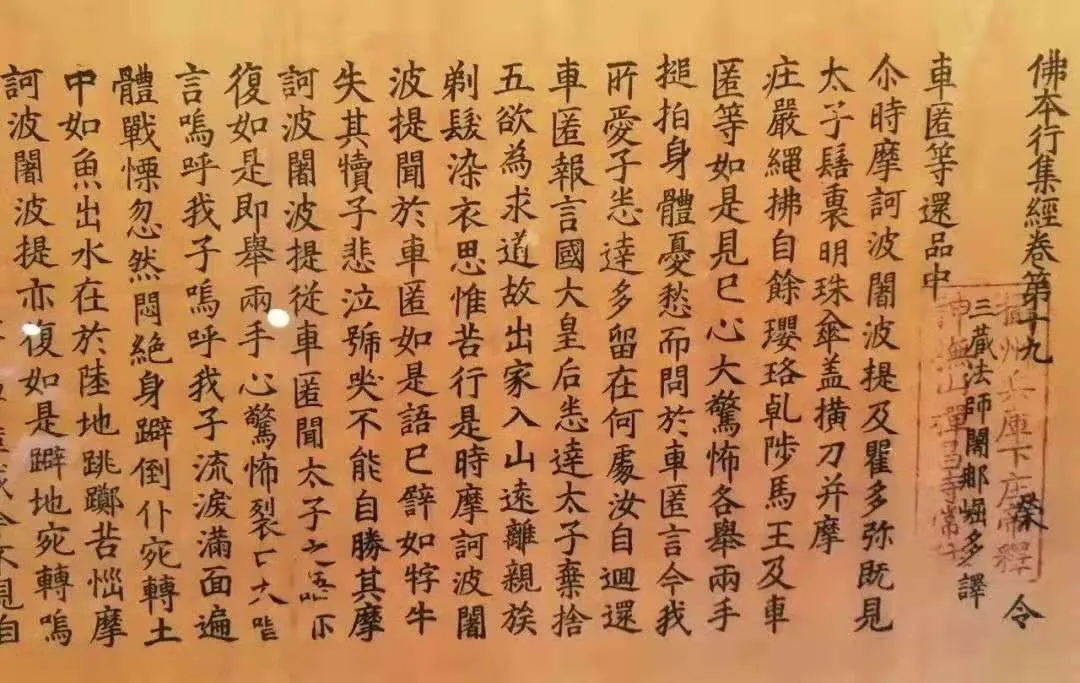 佛本行集經卷第十九 令
三蔵法師闍那崛多譯
攝州兵庫下庄帝釋
神撫山禅昌寺常住
車匿等還品中
尒時摩訶波闍波提及瞿多弥既見
太子髻裏明珠傘盖横刀并摩
庄嚴繩拂自餘瓔珞乹陟馬王及車
匿等如是見已心大驚怖各舉兩手
搥拍身體憂愁而問於車匿言今我
所愛子悉達多留在何處汝自迴還
車匿報言國大皇后悉達太子棄捨
五欲為求道故出家入山遠離親族
剃髮染衣思惟苦行是時摩訶波闍
波提聞於車匿如是語已譬如牸牛
失其犢子悲泣號哭不能自勝其摩
訶波闍波提從車匿聞太子之
復如是即舉兩手心驚怖裂大
言嗚呼我子嗚呼我子流淚滿面遍
體戰慄忽然悶絕身躃倒仆宛轉土
中如魚出水在於陸地跳躑苦惱摩
訶波闍波提亦復如是躃地宛轉嗚